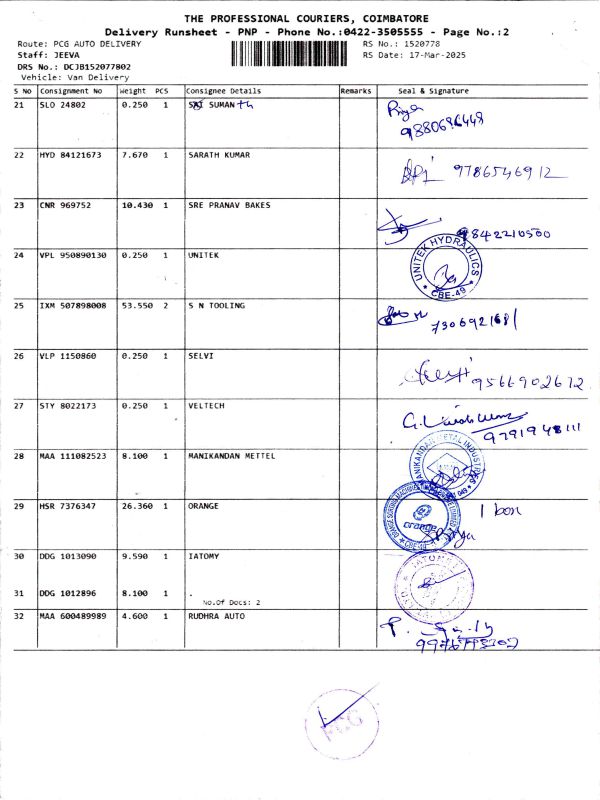 THE PROFESSIONAL COURIERS, COIMBATORE
Delivery Runsheet - PNP - Phone No.:0422-3505555 - Page No.:2
Route: PCG AUTO DELIVERY RS No.: 1520778
Staff: JEEVA RS Date: 17-Mar-2025
DRS No.: DCJB152077802
Vehicle: Van Delivery
S No Consignment No Weight PCS Consignee Details Remarks Seal & Signature
21 SLO 24802 0.250 1 SUMAN th Priya
9880686449
22 HYD 84121673 7.670 1 SARATH KUMAR
9786546912
23 CNR 969752 10.430 1 SRE PRANAV BAKES
9842210500
24 VPL 950890130 0.250 1 UNITEK
UNITEK HYDRAULICS
CBE-49
25 IXM 507898008 53.550 2 S N TOOLING
7306921681
26 VLP 1150860 0.250 1 SELVI
9566902672
27 STY 8022173 0.250 1 VELTECH
9791948111
28 MAA 111082523 8.100 1 MANIKANDAN METTEL
MANIKANDAN METAL INDUSTRIES
29 HSR 7376347 26.360 1 ORANGE 1 box
orange
30 DDG 1013090 9.590 1 IATOMY
31 DDG 1012896 8.100 1 .
No.Of Docs: 2
32 MAA 600489989 4.600 1 RUDHRA AUTO
PCG